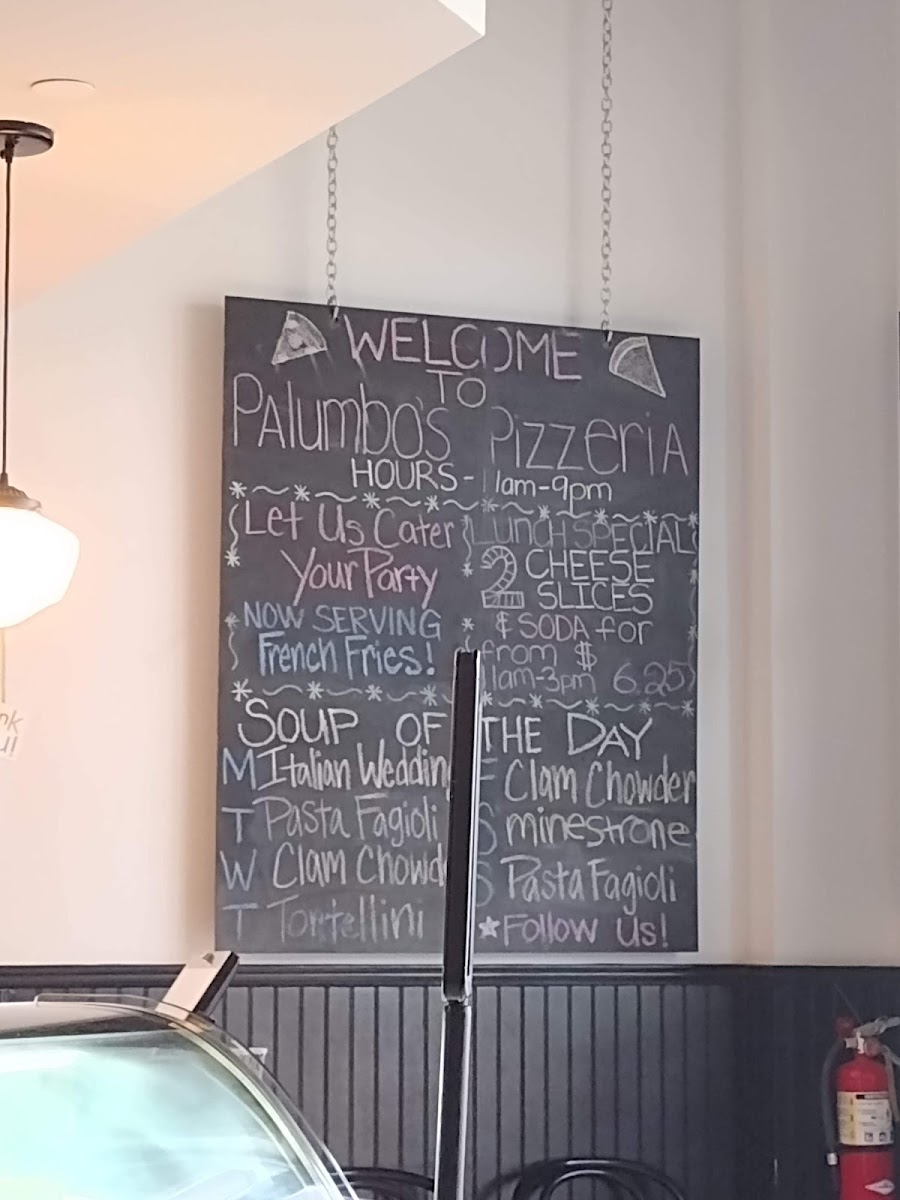 WELCOME
TO
PAlumbo's Pizzeria
HOURS - 11am-9pm
Let Us Cater
Your Party
NOW SERVING
French Fries!
LUNCH SPECIAL
2 CHEESE
SLICES
& SODA for
from $
11am-3pm 6.25
SOUP OF THE DAY
M Italian Weddin
T Pasta Fagioli
W Clam Chowd
T Tortellini
F Clam Chowder
S minestrone
S Pasta Fagioli
Follow us!